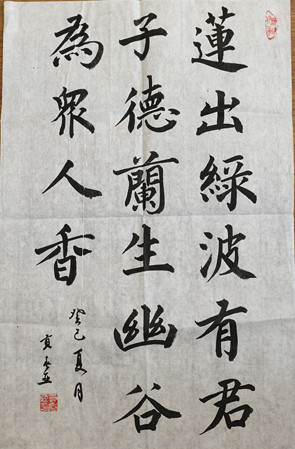 蓮出綠波有君
子德蘭生幽谷
為眾人香
癸巳夏月